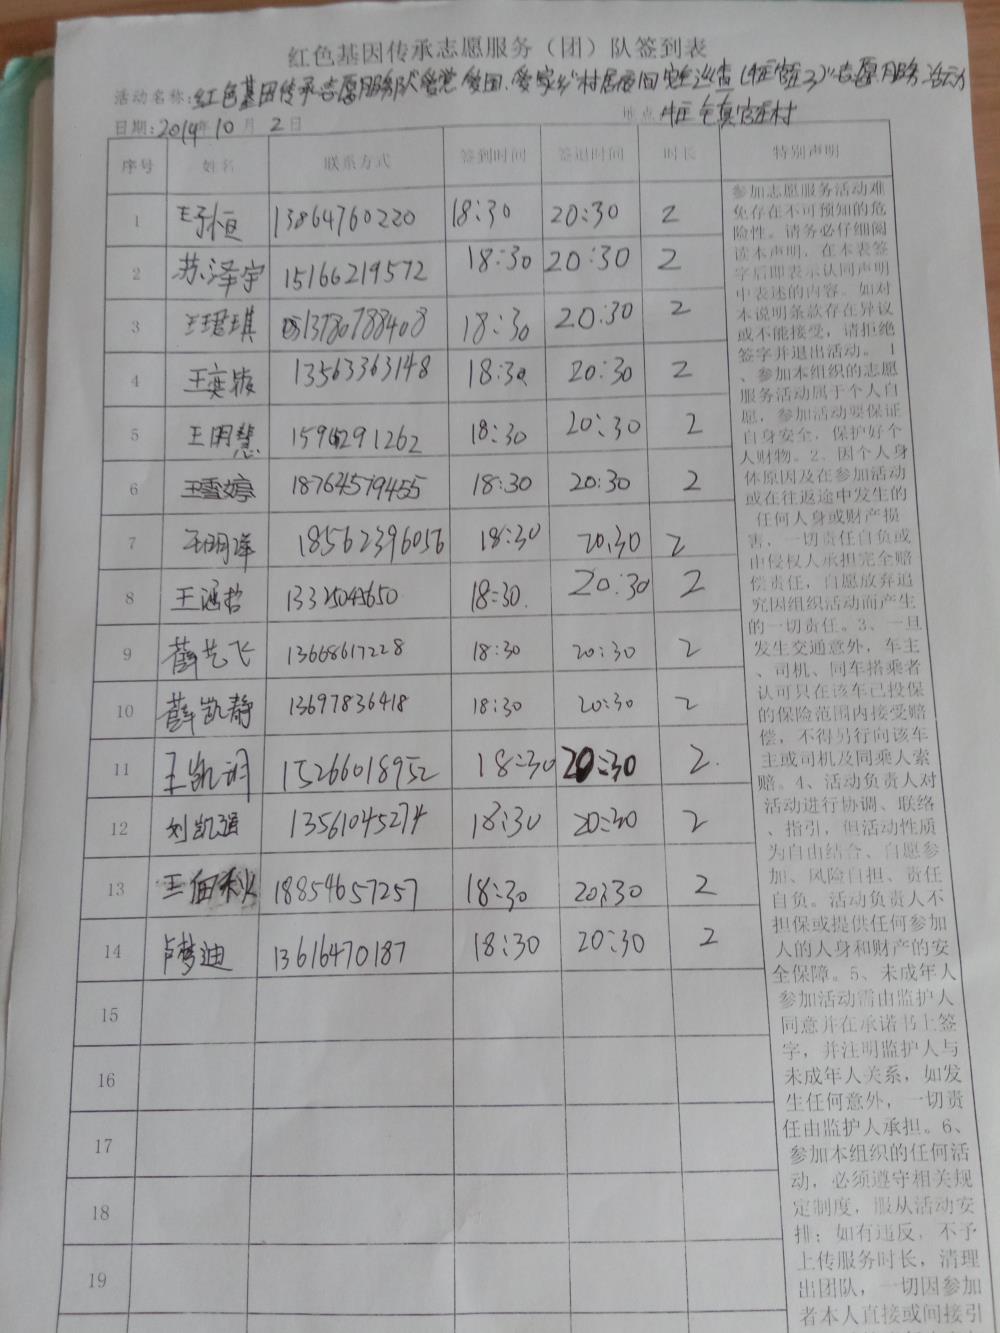 红色基因传承志愿服务(团)队签到表
活动名称:红色基因传承志愿服务队"爱党、爱国、爱家乡"村居夜间安全巡查 志愿服务活动
日期:2019年10月2日 地点
序号 姓名 联系方式 签到时间 签退时间 时长 特别声明
1 王子恒 13864760220 18:30 20:30 2
2 苏泽宇 15166219572 18:30 20:30 2
3 王珺琪 13780788408 18:30 20:30 2
4 王奕璇 13563363148 18:30 20:30 2
5 王明慧 18:30 20:30 2
6 王雪婷 18764579455 18:30 20:30 2
7 18562396056 18:30 20:30 2
8 王涵哲 18:30 20:30 2
9 薛艺飞 13668617228 18:30 20:30 2
10 薛凯静 13697836418 18:30 20:30 2
11 15266018952 18:30 20:30 2
12 刘凯强 13561045274 18:30 20:30 2
13 18854657257 18:30 20:30 2
14 卢梦迪 13616470187 18:30 20:30 2
15
16
17
18
19
参加志愿服务活动难
免存在不可预知的危
险性。请务必仔细阅
读本声明,在本表签
字后即表示认同声明
中表述的内容。如对
本说明条款存在异议
或不能接受,请拒绝
签字并退出活动。1
、参加本组织的志愿
服务活动属于个人自
愿,参加活动要保证
自身安全,保护好个
人财物。2、因个人身
体原因及在参加活动
或在往返途中发生的
任何人身或财产损
害,一切责任自负或
由侵权人承担完全赔
偿责任,自愿放弃追
究因组织活动而产生
的一切责任。3、一旦
发生交通意外,车主
、司机、同车搭乘者
认可只在该车已投保
的保险范围内接受赔
偿,不得另行向该车
主或司机及同乘人索
赔。4、活动负责人对
活动进行协调、联络
、指引,但活动性质
为自由结合、自愿参
加、风险自担、责任
自负。活动负责人不
担保或提供任何参加
人的人身和财产的安
全保障。5、未成年人
参加活动需由监护人
同意并在承诺书上签
字,并注明监护人与
未成年人关系,如发
生任何意外,一切责
任由监护人承担。6、
参加本组织的任何活
动,必须遵守相关规
定制度,服从活动安
排;如有违反,不予
上传服务时长,清理
出团队,一切因参加
者本人直接或间接引